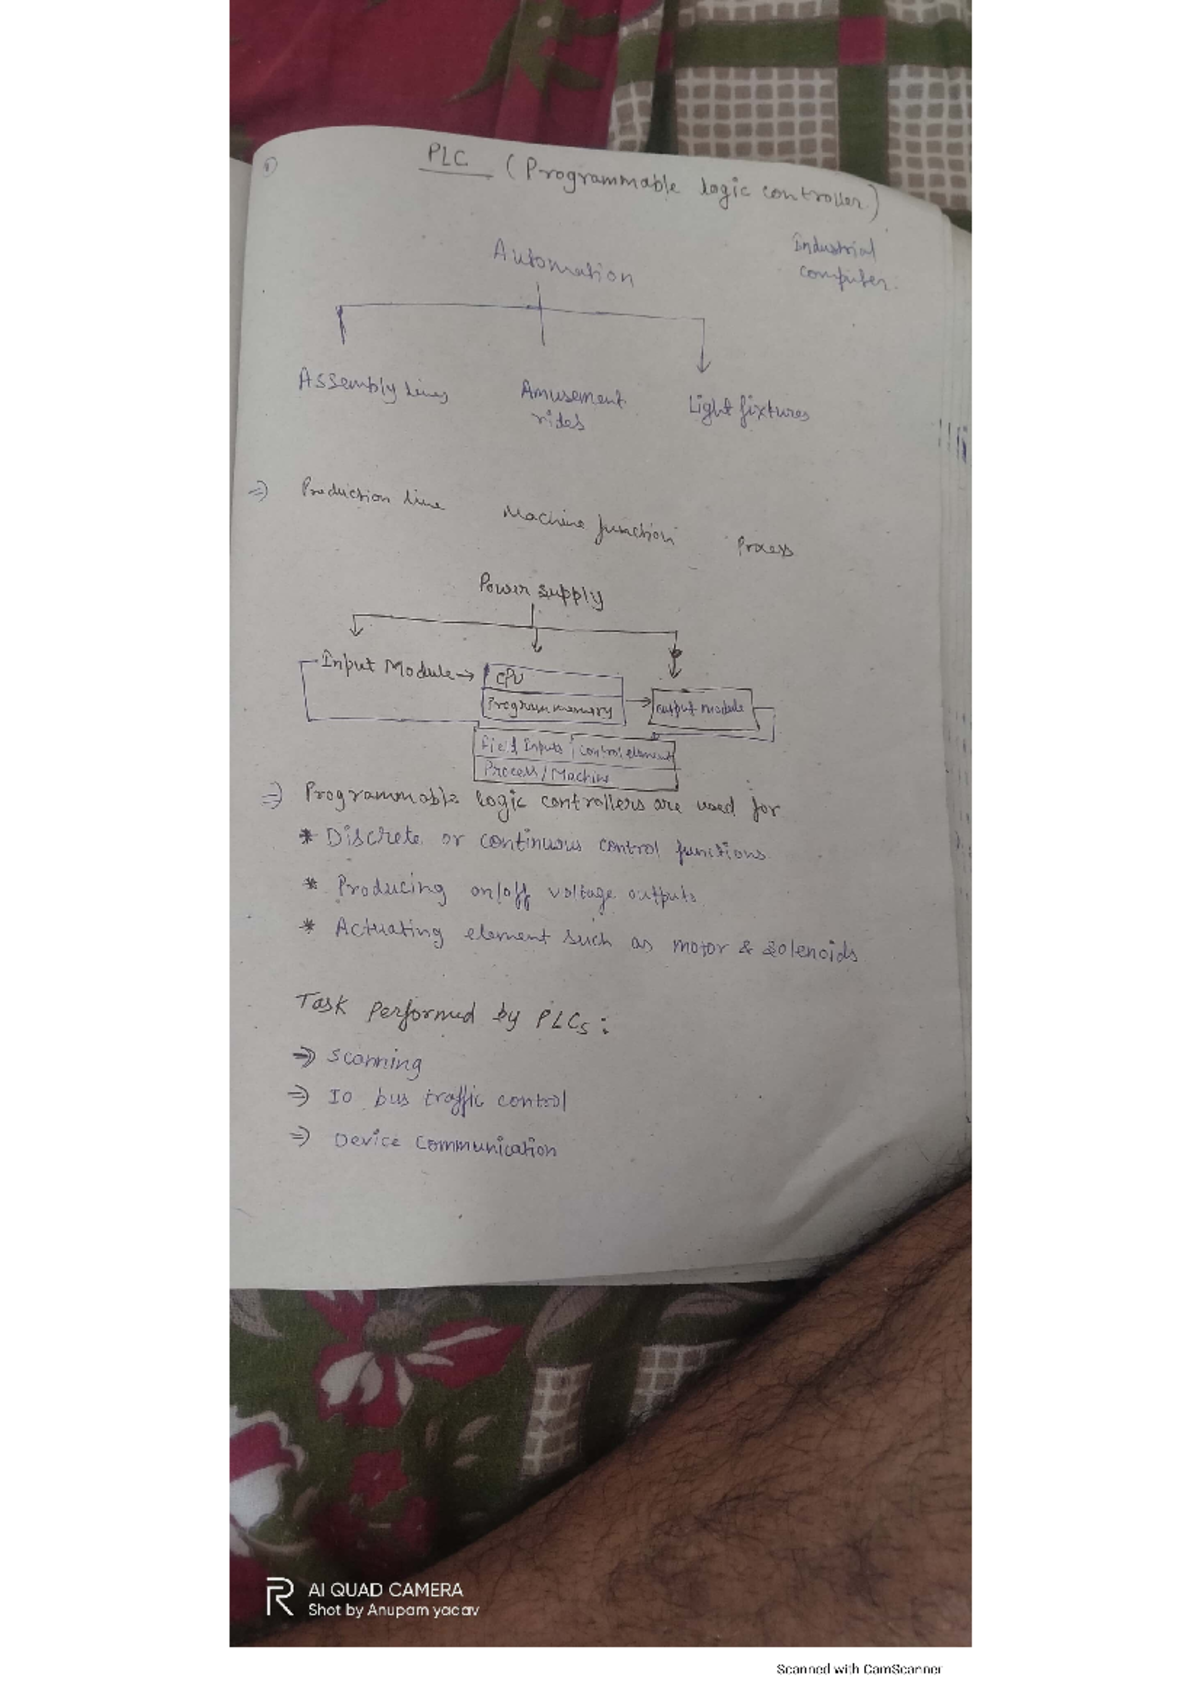 1
PLC (Programmable logic controller)
Industrial
computer.
Automation
Assembly lines
Amusement
rides
Light fixtures
=> Production line Machine function Process
Power supply
Input Module → CPU
Program memory
output module
Field Inputs | control element
Process / Machine
=> Programmable logic controllers are used for
* Discrete or continuous control functions.
* Producing on/off voltage outputs
* Actuating element such as motor & solenoids
Task performed by PLCs :
=> scanning
=> IO bus traffic control
=> Device communication
AI QUAD CAMERA
Shot by Anupam yadav
Scanned with CamScanner